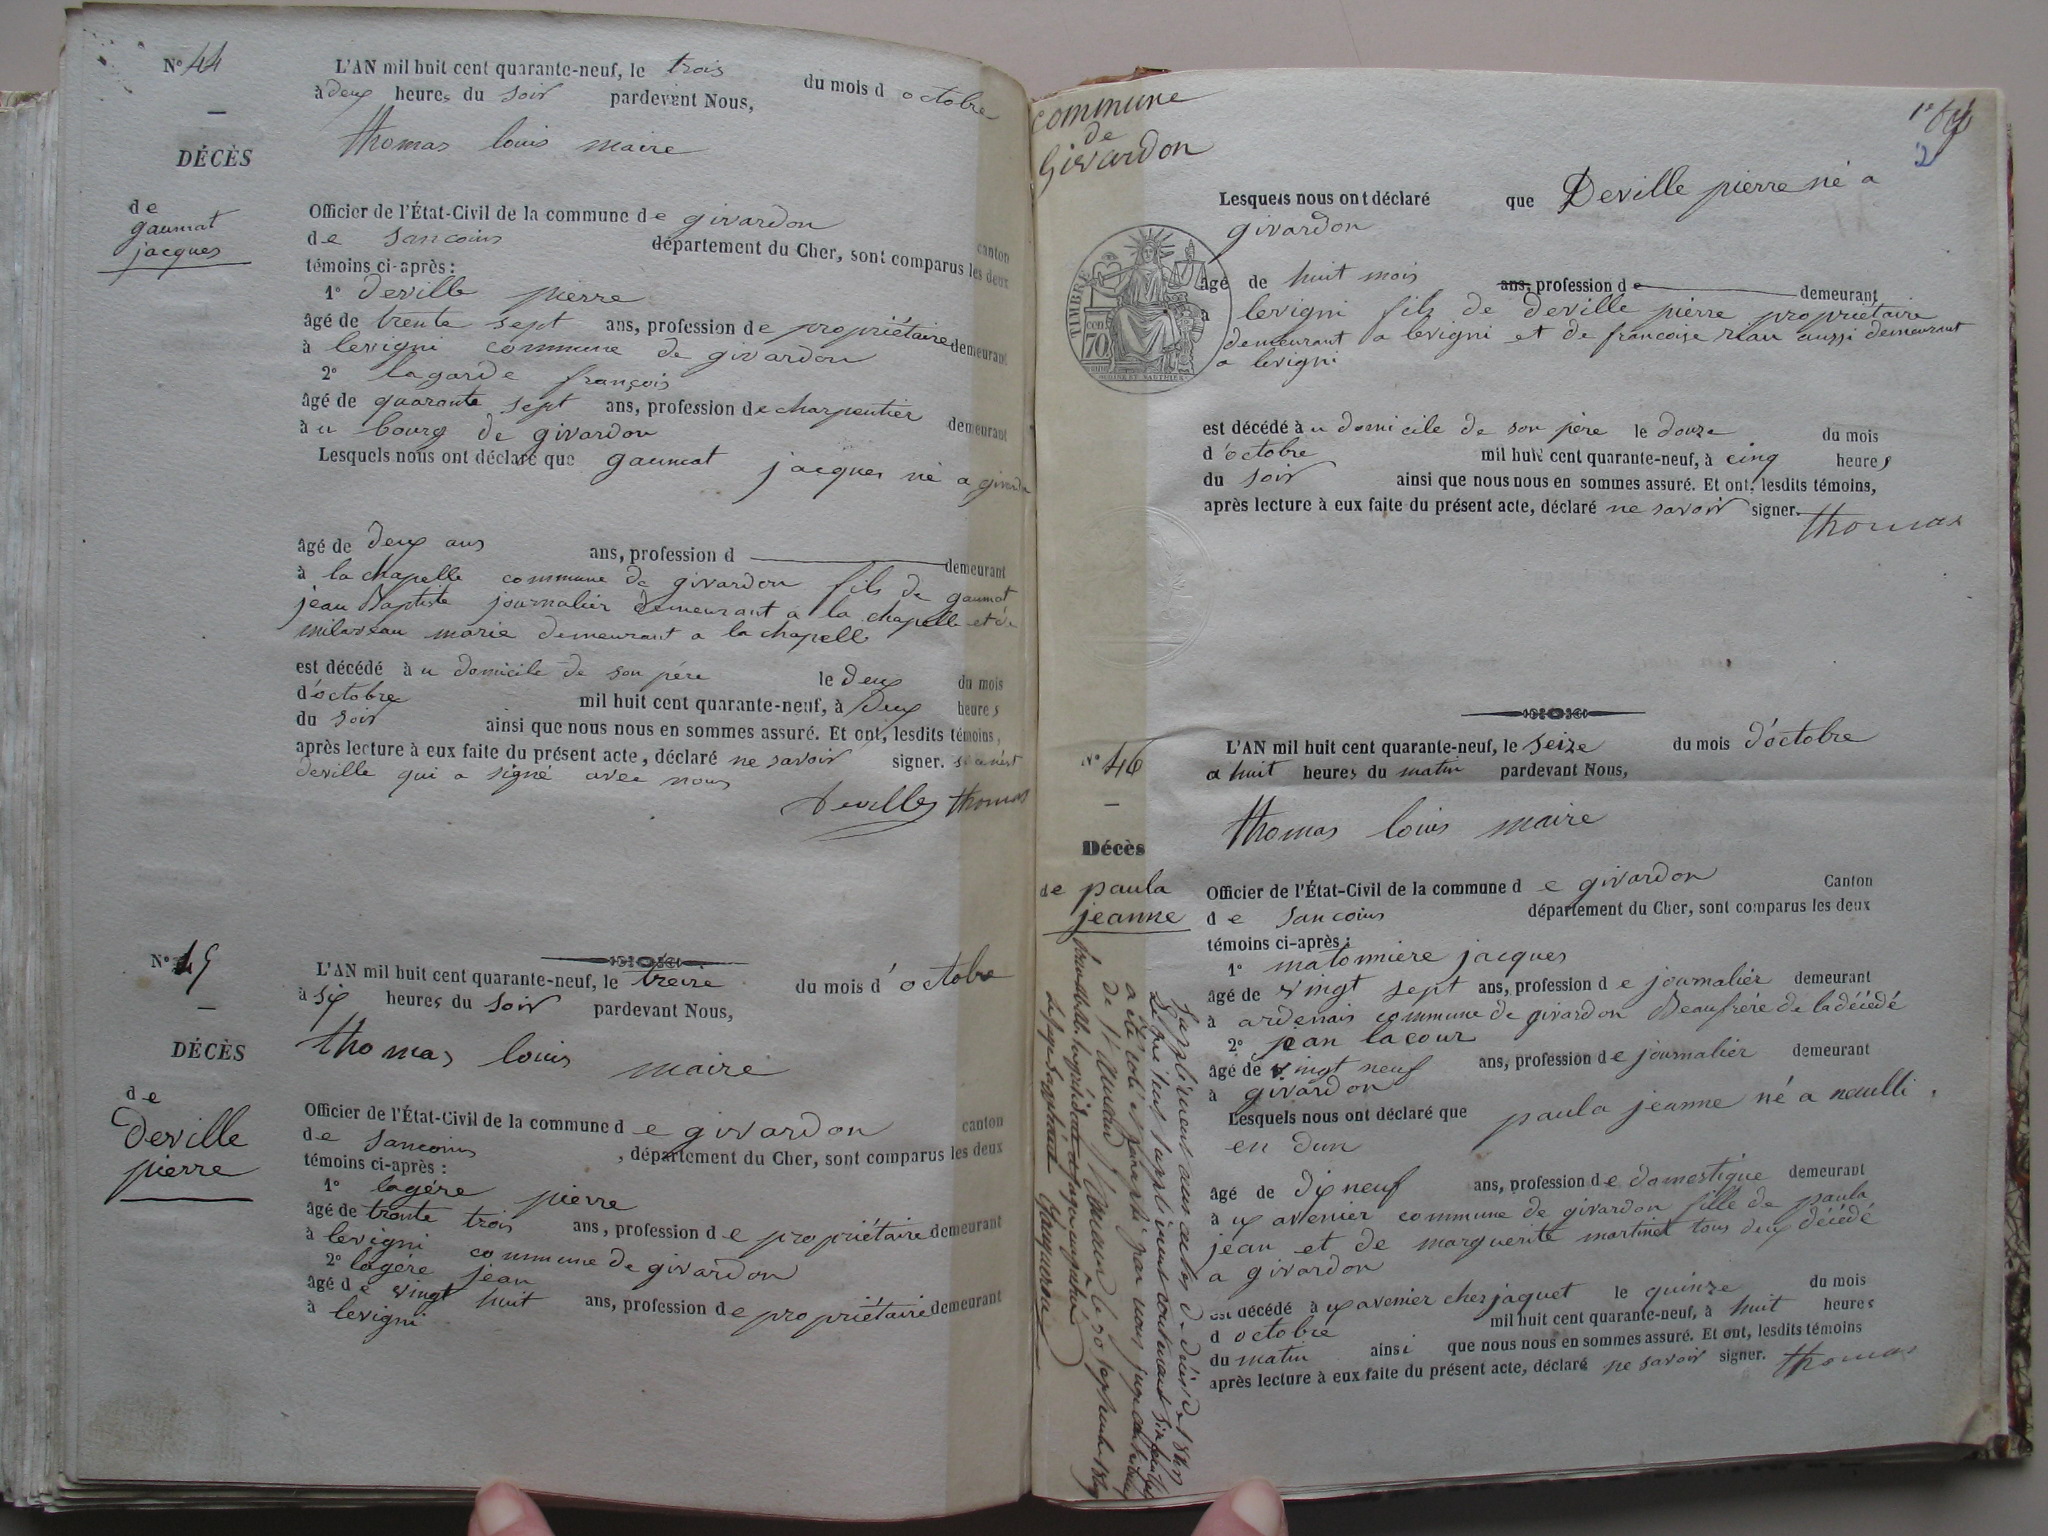 N° 44
L'AN mil huit cent quarante-neuf, le trois du mois d octobre
à deux heures du soir pardevant Nous,
thomas louis maire
DÉCÈS
de
gaumat
jacques
Officier de l'État-Civil de la commune de givardon canton
de Sancoins département du Cher, sont comparus les deux
témoins ci-après :
1° deville pierre
âgé de trente sept ans, profession de propriétaire demeurant
à levigni commune de givardon
2° lagarde françois
âgé de quarante sept ans, profession de charpentier demeurant
à u bourg de givardon
Lesquels nous ont déclaré que gaumat jacques né a givardon
âgé de deux ans ans, profession d demeurant
à la chapelle commune de givardon fils de gaumat
jean Baptiste journalier demeurant a la chapelle et de
milaveau marie demeurant a la chapelle
est décédé à u domicile de son père le deux du mois
d'octobre mil huit cent quarante-neuf, à deux heures
du soir ainsi que nous nous en sommes assuré. Et ont, lesdits témoins,
après lecture à eux faite du présent acte, déclaré ne savoir signer. si n'est
deville qui a signé avec nous
Deville thomas
N° 45
L'AN mil huit cent quarante-neuf, le treize du mois d' octobre
à six heures du soir pardevant Nous,
thomas louis maire
DÉCÈS
de
Deville
pierre
Officier de l'État-Civil de la commune d e givardon canton
de Sancoins , département du Cher, sont comparus les deux
témoins ci-après :
1° lagére pierre
âgé de trente trois ans, profession d e propriétaire demeurant
à levigni commune de givardon
2° lagére jean
âgé de vingt huit ans, profession de propriétaire demeurant
à levigni
commune
de
Givardon
2
Lesquels nous ont déclaré que Deville pierre né a
givardon
âgé de huit mois ans, profession d e demeurant
à levigni fils de deville pierre propriétaire
demeurant a levigni et de francoise riau aussi demeurant
a levigni
TIMBRE
70
est décédé à u domicile de son père le douze du mois
d'octobre mil huit cent quarante-neuf, à cinq heures
du soir ainsi que nous nous en sommes assuré. Et ont, lesdits témoins,
après lecture à eux faite du présent acte, déclaré ne savoir signer.
thomas
N° 46
L'AN mil huit cent quarante-neuf, le seize du mois d'octobre
a huit heures du matin pardevant Nous,
thomas louis maire
Décès
de paula
jeanne
Officier de l'État-Civil de la commune d e givardon Canton
d e Sancoins département du Cher, sont comparus les deux
témoins ci-après :
1° matonniere jacques
âgé de vingt sept ans, profession d e journalier demeurant
a ardenais commune de givardon Beaufrére de la décédé
2° jean lacour
âgé de vingt neuf ans, profession d e journalier demeurant
a givardon
Lesquels nous ont déclaré que paula jeanne né a neuilli
en dun
âgé de dix neuf ans, profession d e domestique demeurant
à ux avenier commune de givardon fille de paula
jean et de marguerite martinet tous deux décédé
a givardon
est décédé à ux avenier chez jaquet le quinze du mois
d octobre mil huit cent quarante-neuf, à huit heures
du matin ainsi que nous nous en sommes assuré. Et ont, lesdits témoins
après lecture à eux faite du présent acte, déclaré ne savoir signer.
thomas
Supplément aux actes de décès de 1849
Le présent supplément contenant six feuilles
a été coté et paraphé par nous juge au tribunal
de St amand le 30 septembre 1849